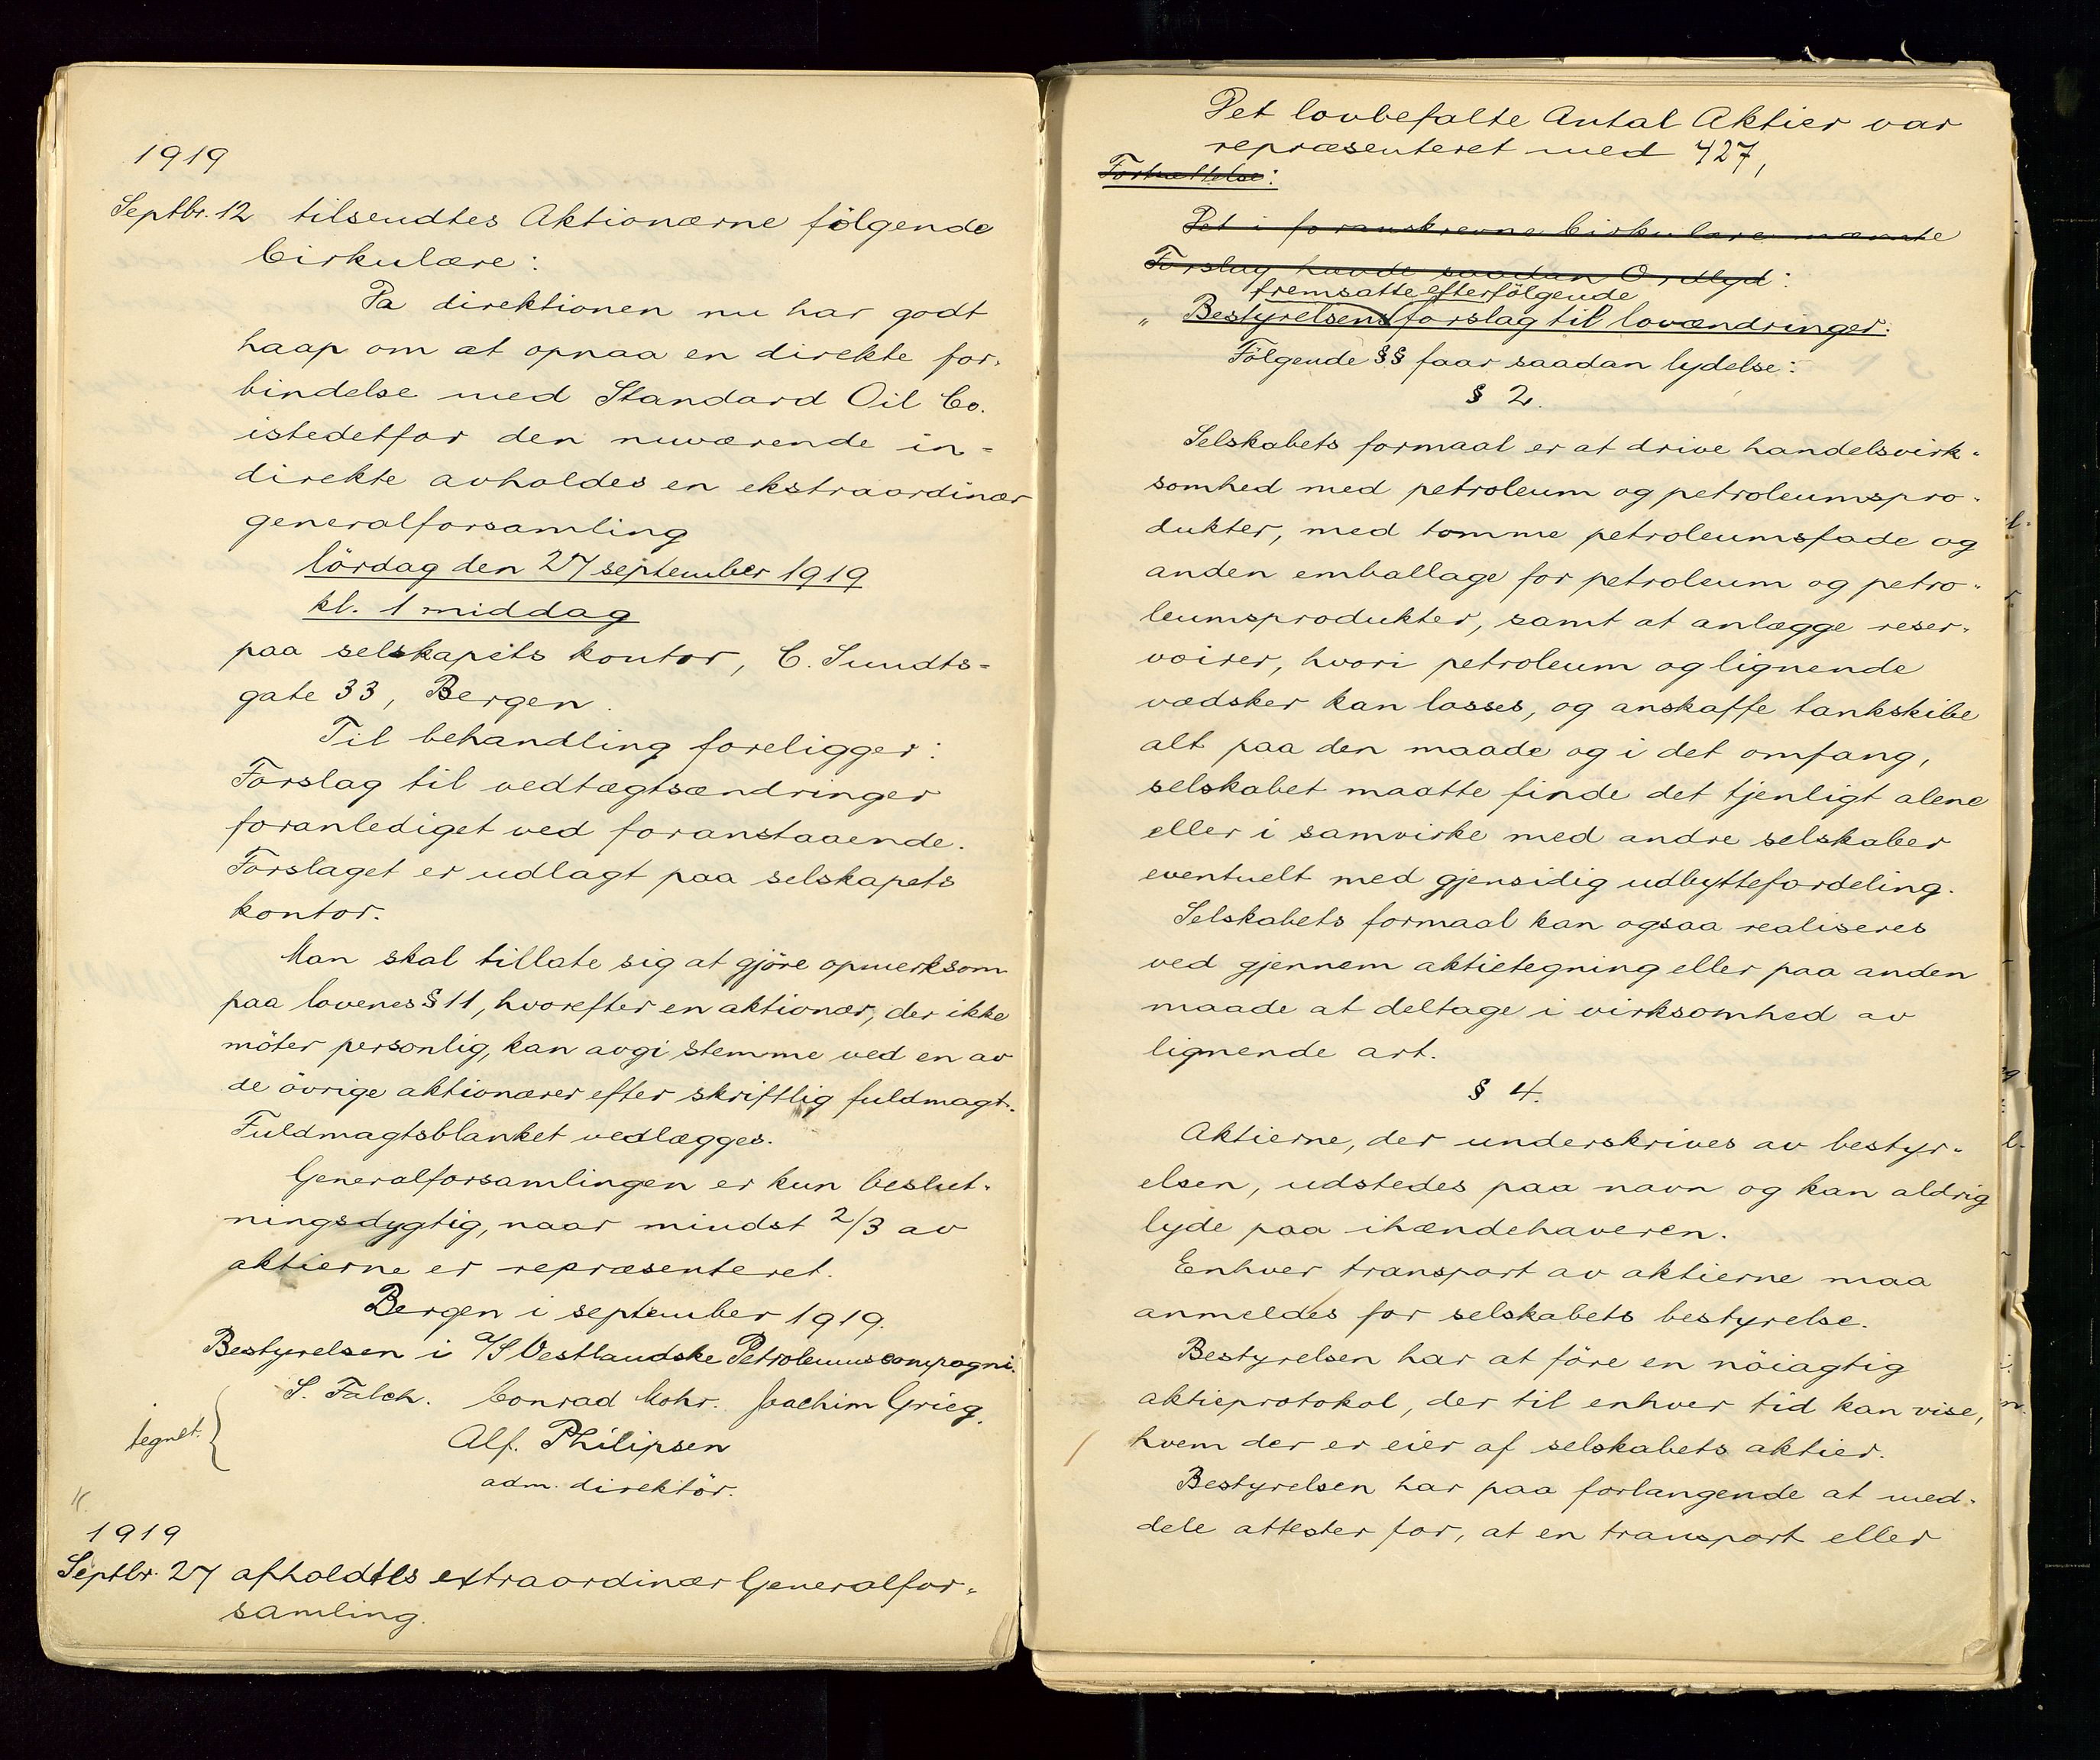 1919
Septbr. 12 tilsendtes Aktionærne følgende
Cirkulære:
Da direktionen nu har godt
haap om at opnaa en direkte for-
bindelse med Standard Oil Co.
istedetfor den nuværende in-
direkte avholdes en ekstraordinær
generalforsamling
lördag den 27 september 1919
kl. 1 middag
paa selskapets kontor, C. Sundts-
gate 33, Bergen.
Til behandling foreligger:
Forslag til vedtægtsændringer
foranlediget ved foranstaaende.
Forslaget er udlagt paa selskapets
kontor.
Man skal tillate sig at gjöre opmerksom
paa lovenes § 11, hvorefter en aktionær, der ikke
möter personlig, kan avgi stemme ved en av
de övrige aktionærer efter skriftlig fuldmagt.
Fuldmagtsblanket vedlægges.
Generalforsamlingen er kun beslut-
ningsdygtig, naar mindst 2/3 av
aktierne er repræsenteret.
Bergen i september 1919.
Bestyrelsen i A/S Vestlandske Petroleumscompagni.
S. Falch. Conrad Mohr. Joachim Grieg.
tegnet.
Alf. Philipsen
adm. direktör.
1919
Septbr. 27 afholdtes extraordinær Generalfor-
samling.
Det lovbefalte Antal Aktier var
repræsenteret med 427,
Fortsættelse:
Det i foranskrevne Cirkulære nævnte
Forslag havde saadan Ordlyd:
fremsatte efterfölgende
" Bestyrelsens forslag til lovændringer:
Fölgende §§ faar saadan lydelse:
§ 2.
Selskabets formaal er at drive handelsvirk-
somhed med petroleum og petroleumspro-
dukter, med tomme petroleumsfade og
anden emballage for petroleum og petro-
leumsprodukter, samt at anlægge reser-
voirer, hvori petroleum og lignende
vædsker kan losses, og anskaffe tankskibe
alt paa den maade og i det omfang,
selskabet maatte finde det tjenligt alene
eller i samvirke med andre selskaber
eventuelt med gjensidig udbyttefordeling.
Selskabets formaal kan ogsaa realiseres
ved gjennem aktietegning eller paa anden
maade at deltage i virksomhed av
lignende art.
§ 4.
Aktierne, der underskrives av bestyr-
elsen, udstedes paa navn og kan aldrig
lyde paa ihændehaveren.
Enhver transport av aktierne maa
anmeldes for selskabets bestyrelse.
Bestyrelsen har at före en nöiagtig
aktieprotokol, der til enhver tid kan vise,
hvem der er eier af selskabets aktier.
Bestyrelsen har paa forlangende at med-
dele attester for, at en transport eller